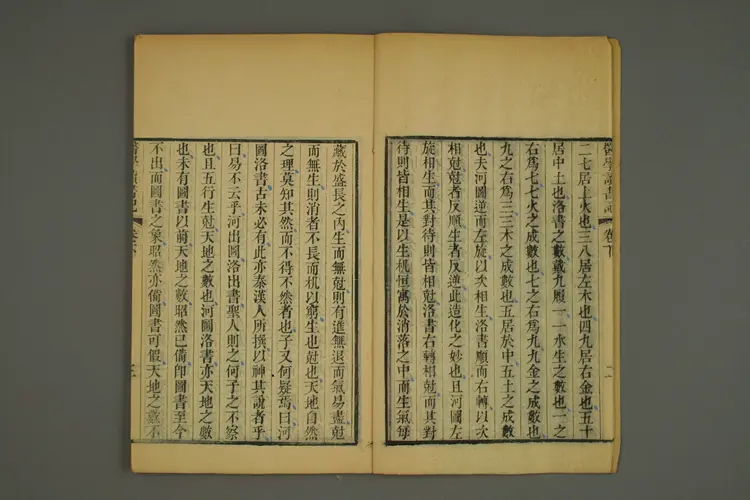 醫學讀書記 卷下 二
二七居上火也三八居左木也四九居右金也五十
居中土也洛書之數戴九履一一水生之數也一之
右為七七火之成數也七之右為九九金之成數也
九之右為三三木之成數也五居於中五土之成數
也夫河圖逆而左旋以次相生洛書順而右轉以次
相尅尅者反順生者反逆此造化之妙也且河圖左
旋相生而其對待則皆相尅洛書右轉相尅而其對
待則皆相生是以生机恒寓於消落之中而生氣每
藏於盛長之內生而無尅則有進無退而氣易盡尅
而無生則消者不長而机以窮生也尅也天地自然
之理莫知其然而不得不然者也子又何疑焉曰河
圖洛書古未必有此亦秦漢人所撰以神其說者乎
曰易不云乎河出圖洛出書聖人則之何子之不察
也且五行生尅天地之數也河圖洛書亦天地之數
也未有圖書以前天地之數昭然已備即圖書至今
不出而圖書之象昭然亦備圖書可假天地之數不
醫學讀書記 卷下 三